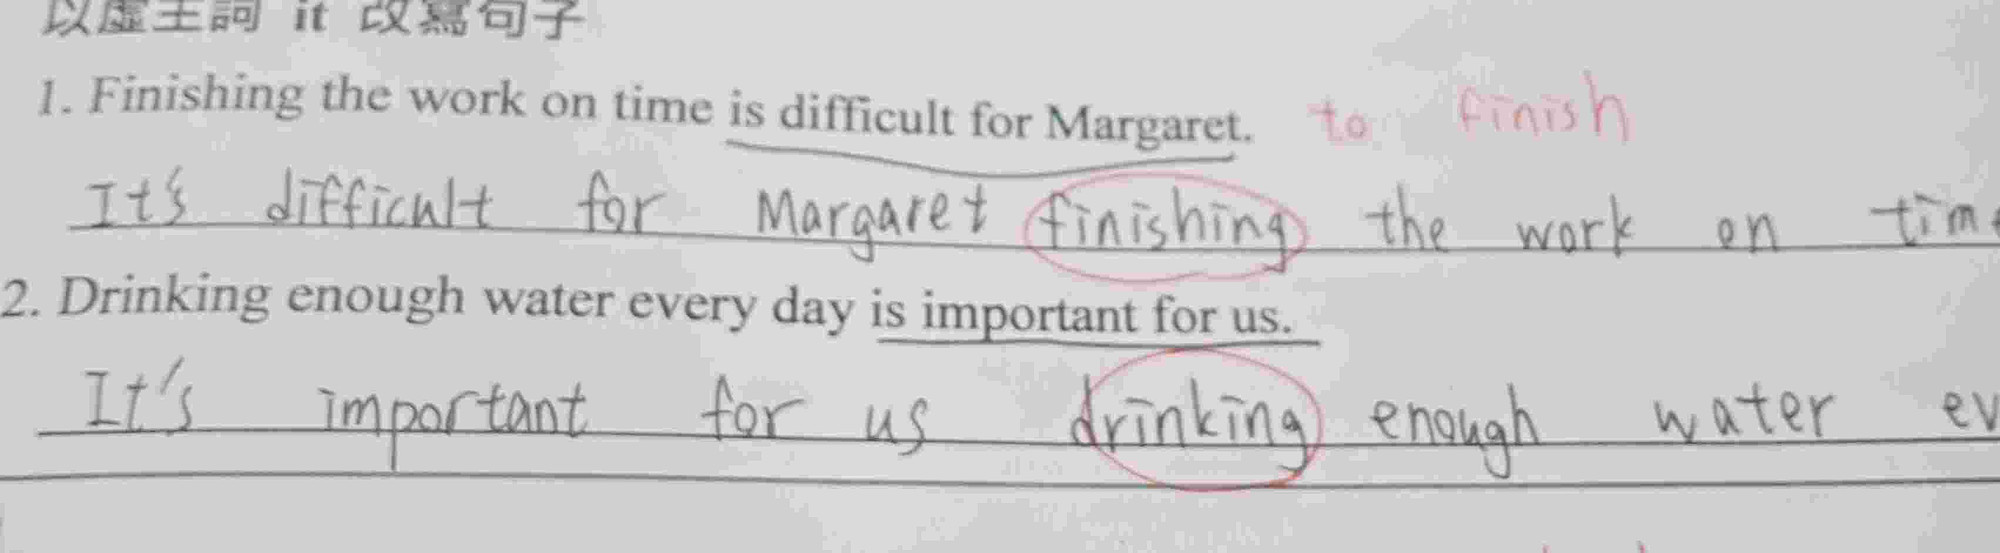 以虛主詞 it 改寫句子
1. Finishing the work on time is difficult for Margaret. to finish
It's difficult for Margaret finishing the work on time
2. Drinking enough water every day is important for us.
It's important for us drinking enough water ev